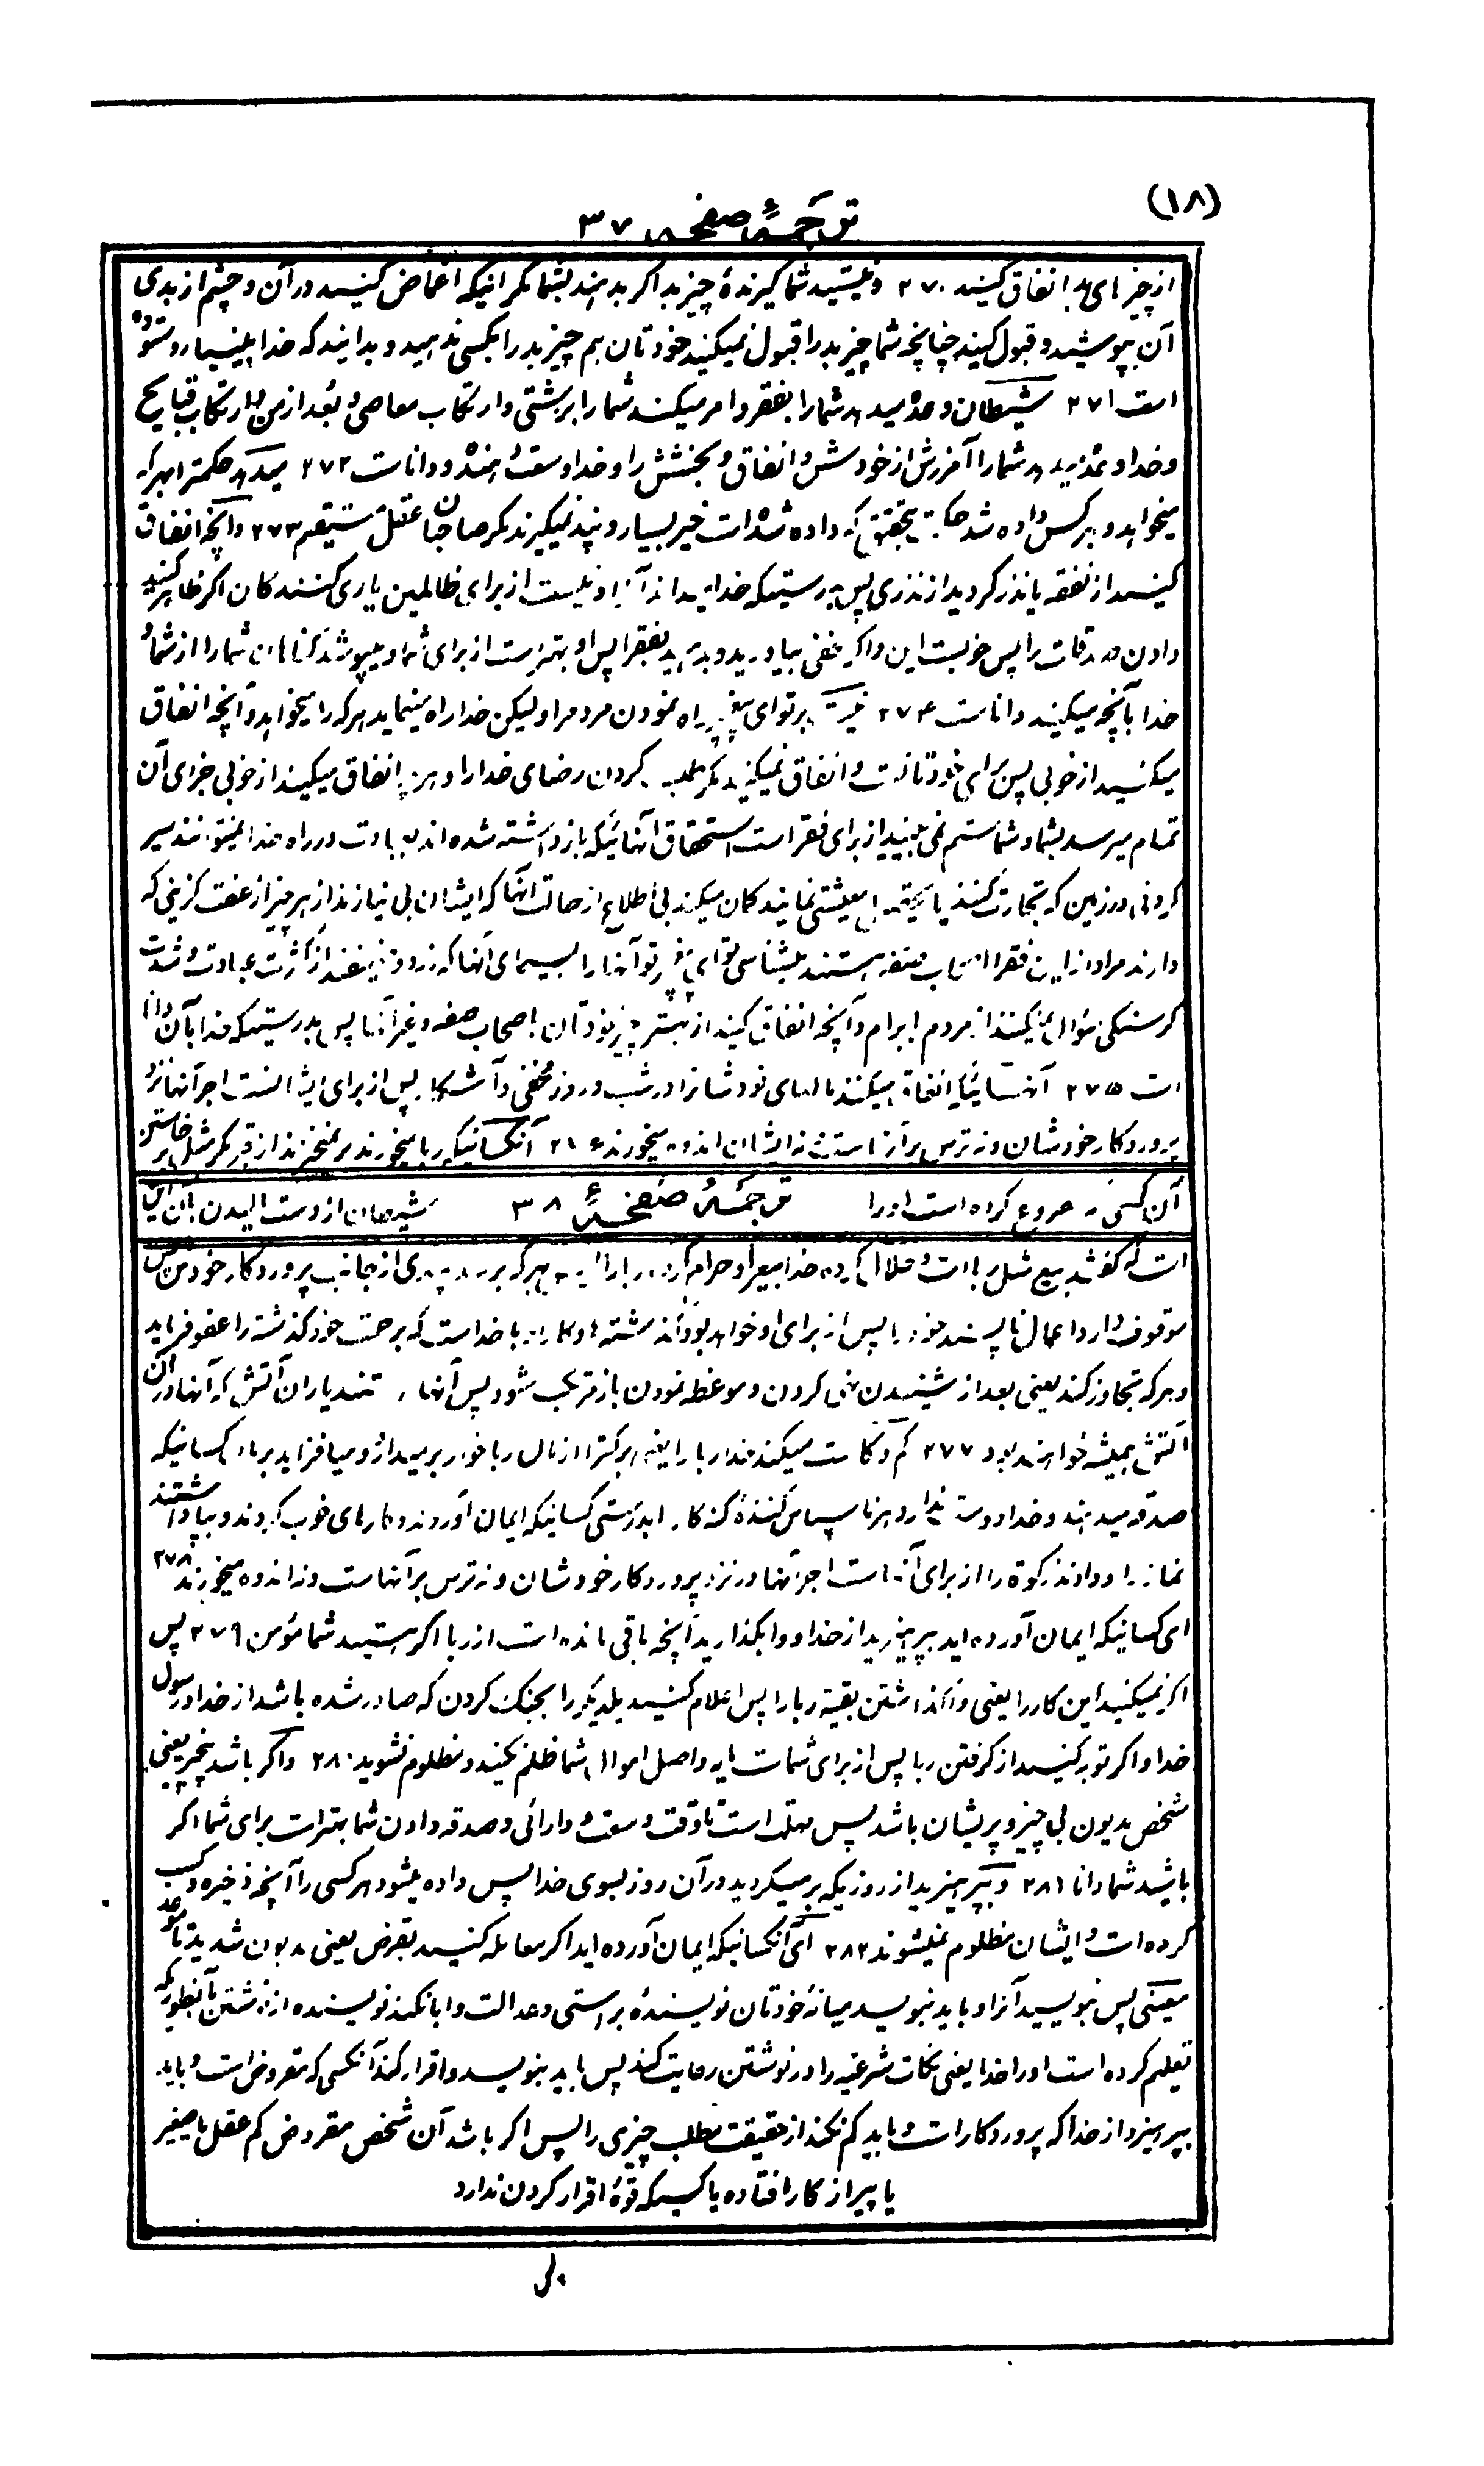 (۱۸)
ترجمهٔ صفحهٔ ۳۷
از چیزهای بد انفاق کنید ۲۷۰ و نیستید شما گیرندهٔ چیز بد اگر بدهند بشما مگر اینکه اغماض کنید در آن و چشم از بدی
آن بپوشید و قبول کنید چنانچه شما چیز بد را قبول نمیکنید خودتان هم چیز بد را بکسی ندهید و بدانید که خدا بینیاز و ستوده
است ۲۷۱ شیطان وعده میدهد شما را بفقر و امر میکند شما را بزشتی و ارتکاب معاصی و بعد از من و ارتکاب قبایح
و خدا وعده میدهد شما را آمرزش از خودش و انفاق و بخشش را و خدا وسعت دهنده و داناست ۲۷۲ میدهد حکمت را بهر که
میخواهد و بهر کس داده شد حکمت بتحقیق که داده شده است خیر بسیار و پند نمیگیرند مگر صاحبان عقل مستقیم ۲۷۳ و آنچه انفاق
کنید از نفقه یا نذر کردید از نذری پس بدرستیکه خدا میداند آنرا و نیست از برای ظالمین یاری کنندگان اگر ظاهر کنید
دادن صدقات را پس خوبست این و اگر مخفی بیاورید و بدهید بفقرا پس او بهتر است از برای شما و میپوشد گناهان شما را از شما و
خدا بآنچه میکنید داناست ۲۷۴ نیست بر تو ای پیغمبر راه نمودن مردم را و لیکن خدا راه مینماید هر که را میخواهد و آنچه انفاق
میکنید از خوبی پس برای خودتانست و انفاق نمیکنید مگر بطلب کردن رضای خدا را و هر چه انفاق میکنید از خوبی جزای آن
تمام میرسد بشما و شما ستم نمی‌بینید از برای فقرا است استحقاق آنهائیکه بازداشته شده‌اند بعبادت در راه خدا نمیتوانند سیر
کردن در زمین که تجارت کنند یا معیشتی نمایند گمان میکند بی اطلاع از حالت آنها که ایشان بی نیازند از هر چیز از عفت گزینی که
دارند مراد از این فقرا اصحاب صفه هستند میشناسی تو ای پیغمبر تو آنها را بسیمای آنها که زرد و ضعیفند از کثرت عبادت و شدت
گرسنگی سؤال نمیکنند از مردم بابرام و آنچه انفاق کنید از بهتر چیز خودتان باصحاب صفه و غیر آنها پس بدرستیکه خدا بآن دانا
است ۲۷۵ آنکسانیکه انفاق میکنند مالهای خودشانرا در شب و روز مخفی و آشکارا پس از برای ایشانست اجر آنها نزد
پروردگار خودشان و نه ترس بر آنها است و نه ایشان اندوه میخورند ۲۷۶ آنکسانیکه ربا میخورند بر نمیخیزند از قبر مگر مثل برخاستن
آن کسی که مصروع کرده است او را ترجمهٔ صفحهٔ ۳۸ شیطان از دست مالیدن بآن این
است که گفتند بیع مثل ربا است و حلال کرده خدا بیع را و حرام کرده ربا را پس هر که برسد پندی از جانب پروردگار خودش پس
موقوف دارد اعمال ناپسند خود را پس از برای او خواهد بود آنچه گذشته و کار او با خداست که برحمت خود گذشته را عفو فرماید
و هر که تجاوز کند یعنی بعد از شنیدن نهی کردن و موعظه نمودن باز مرتکب شود پس آنها هستند یاران آتش که آنها در آن
آتش همیشه خواهند بود ۲۷۷ کم و کاست میکند خدا ربا را یعنی برکت را از مال ربا خوار بر میدارد و میافزاید بر مال کسانیکه
صدقه میدهند و خدا دوست ندارد هر ناسپاس کنندهٔ گنه کار را بدرستی کسانیکه ایمان آوردند و کارهای خوب کردند و بپا داشتند
نماز را و دادند زکوة را از برای آنها است اجر آنها در نزد پروردگار خودشان و نه ترس بر آنهاست و نه اندوه میخورند ۲۷۸
ای کسانیکه ایمان آورده‌اید بپرهیزید از خدا و وابگذارید آنچه باقی مانده است از ربا اگر هستید شما مؤمن ۲۷۹ پس
اگر نمیکنید این کار را یعنی واگذاشتن بقیهٔ ربا را پس اعلام کنید یکدیگر را بجنگ کردن که صادر شده باشد از خدا و رسول
خدا و اگر توبه کنید از گرفتن ربا پس از برای شماست مایه و اصل اموال شما ظلم نکنید و مظلوم نشوید ۲۸۰ و اگر باشد بیچیز یعنی
شخص مدیون بی چیز و پریشان باشد پس مهلت است تا وقت وسعت و دارائی و صدقه دادن شما بهتر است برای شما اگر
باشید شما دانا ۲۸۱ و بپرهیزید از روزیکه برمیگردید در آن روز بسوی خدا پس داده میشود هر کسی را آنچه ذخیره و کسب
کرده است و ایشان مظلوم نمیشوند ۲۸۲ ای آنکسانیکه ایمان آورده‌اید اگر معامله کنید بقرض یعنی مدیون شدید تا موعد
معینی پس بنویسید آنرا و باید بنویسد میانهٔ خودتان نویسندهٔ براستی و عدالت و ابا نکند نویسنده از نوشتن بآنطوریکه
تعلیم کرده است او را خدا یعنی نکات شرعیه را در نوشتن رعایت کند پس باید بنویسد و اقرار کند آنکسی که مقروض است و باید
بپرهیزد از خدا که پروردگار است و باید کم نکند از حقیقت مطلب چیزی را پس اگر باشد آن شخص مقروض کم عقل یا صغیر
یا پیر از کار افتاده یا کسیکه قوهٔ اقرار کردن ندارد